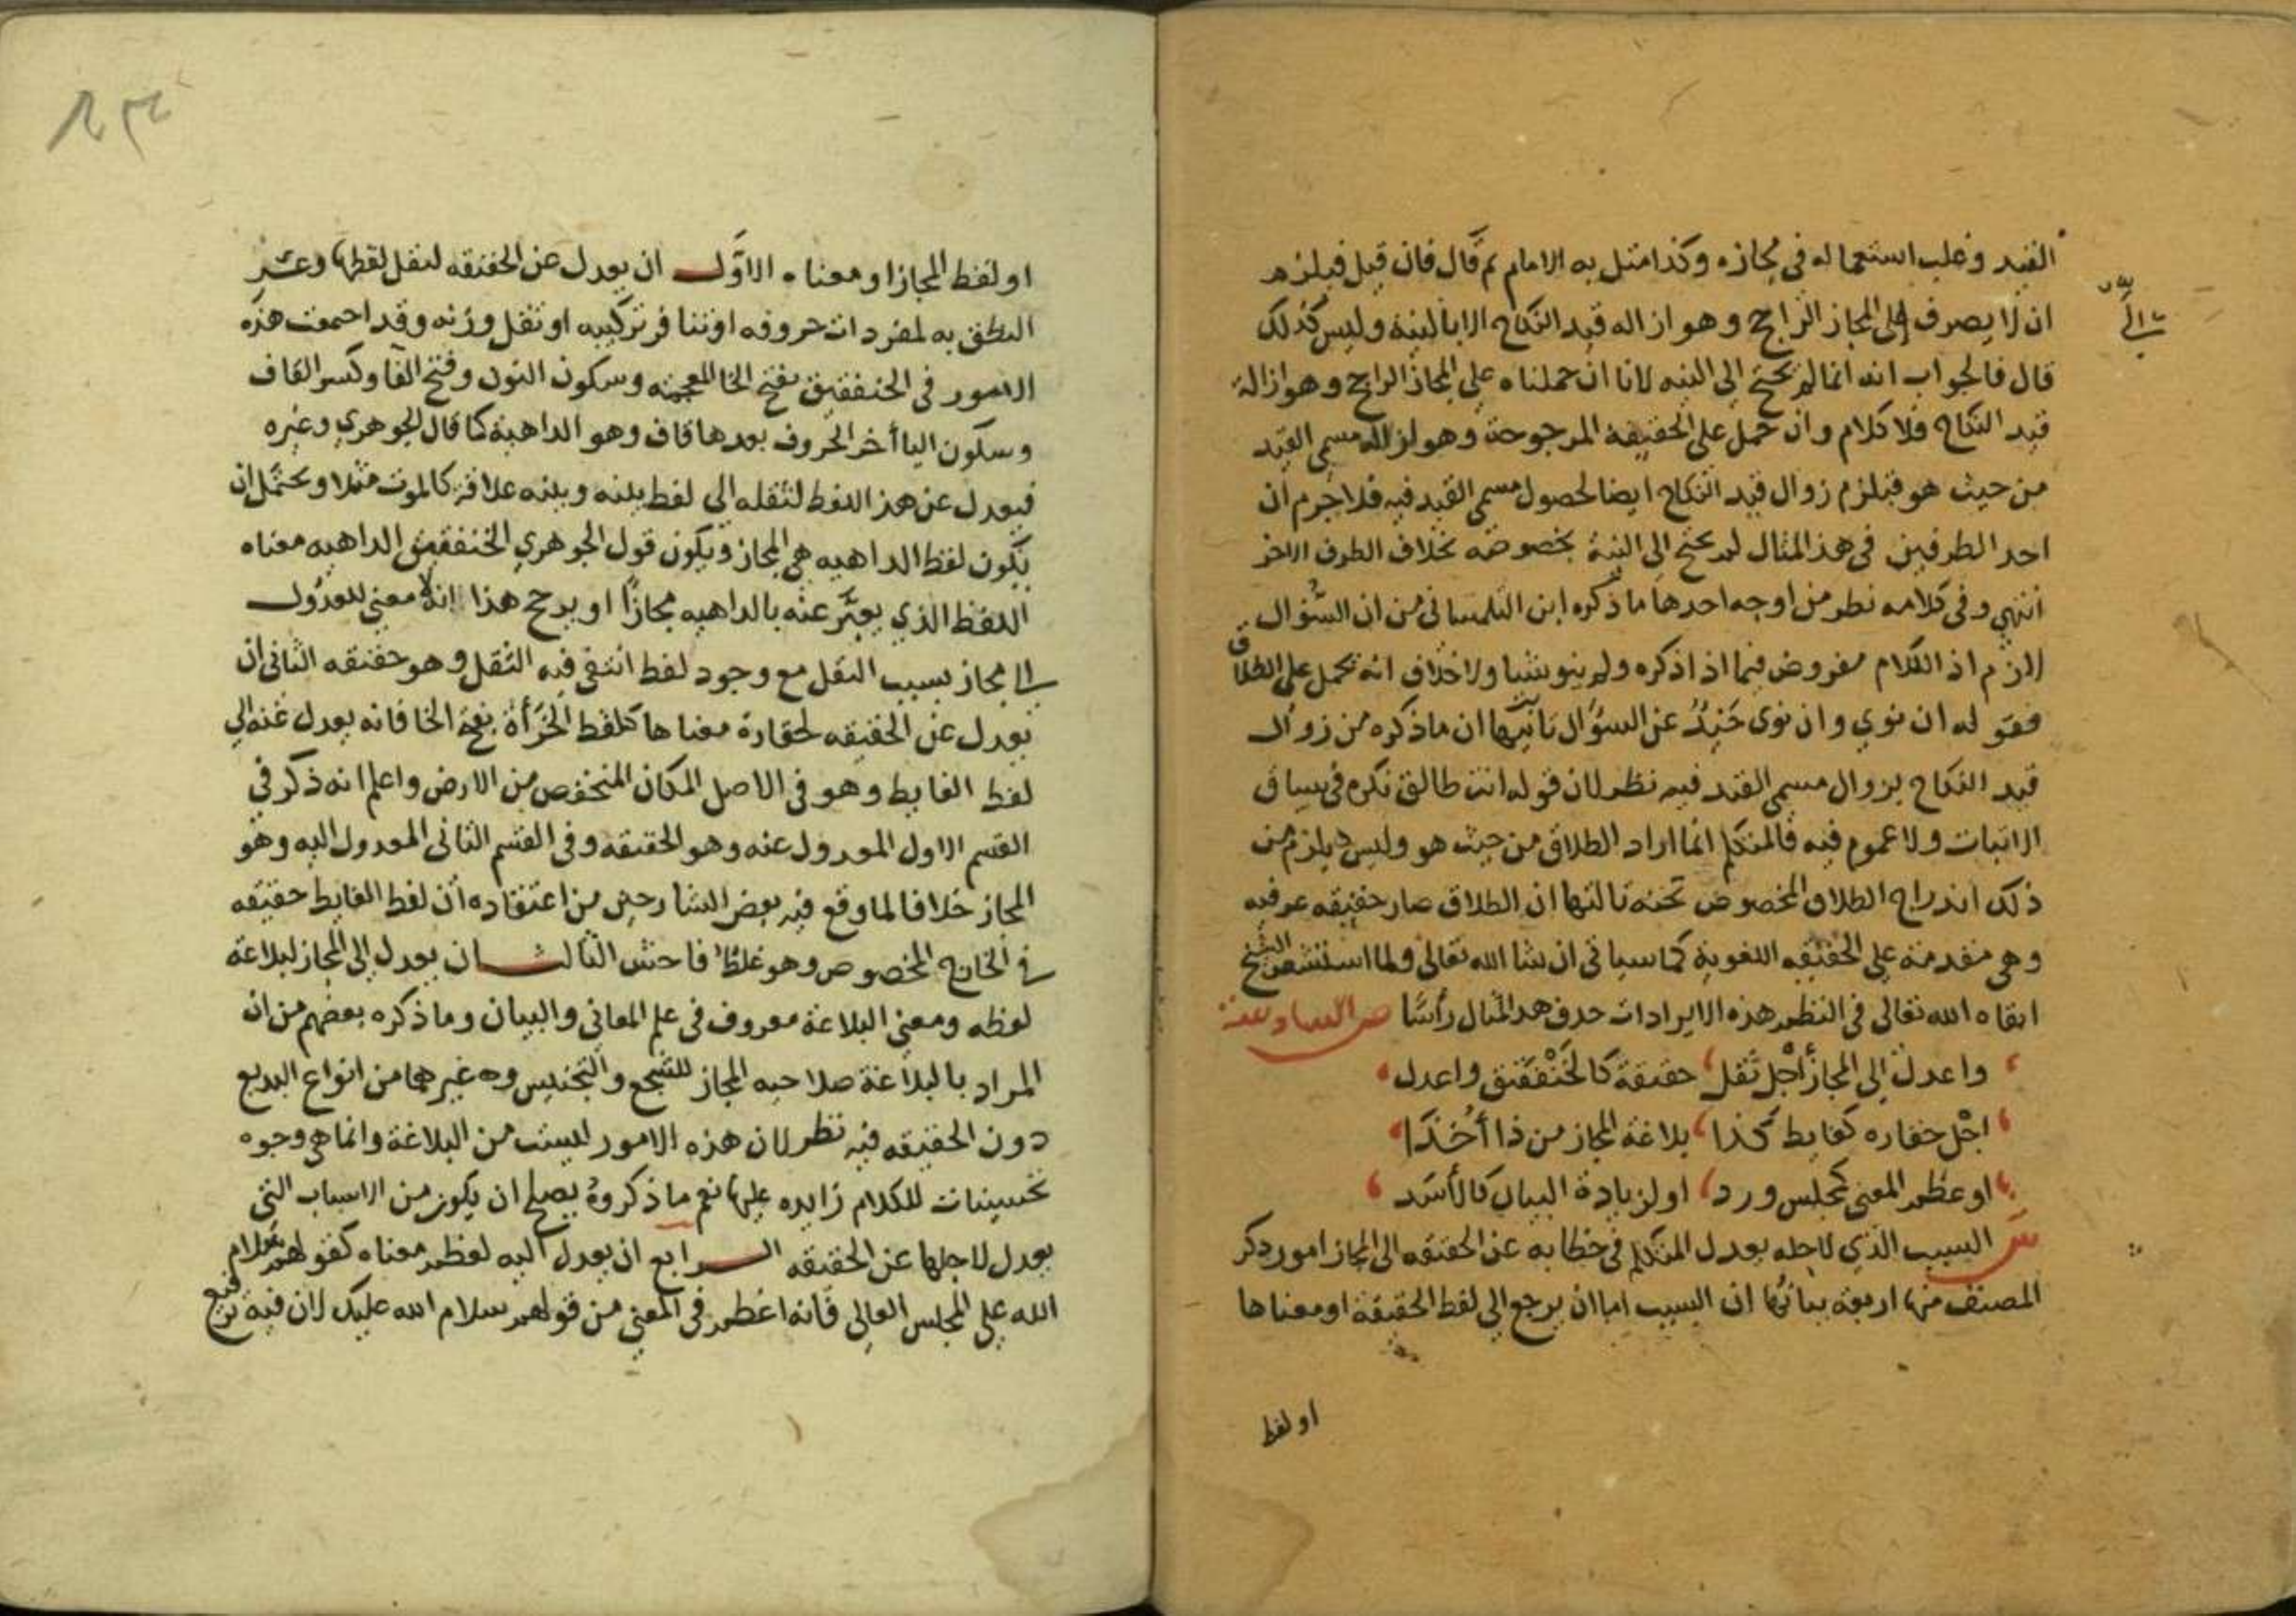 القيد وغلب استعماله في مجازه وكذا مثل به الامام ثم قال فان قيل فيلزم
ان لا يصرف الى المجاز الراجح وهو ازالة قيد النكاح الا بالنية وليس كذلك
قال فالجواب انه انما لم يحتج الى النيه لانا ان حملناه على المجاز الراجح وهو ازالة
قيد النكاح فلا كلام وان حمل على الحقيقة المرجوحة وهو ازالة مسمى القيد
من حيث هو فيلزم زوال قيد النكاح ايضا لحصول مسمى القيد فيه فلا جرم ان
احد الطرفين في هذا المثال لم يحتج الى النية بخصوصه بخلاف الطرف الاخر
انتهى وفي كلامه نظر من اوجه احدها ما ذكره ابن التلمساني من ان السؤال
لازم اذ الكلام مفروض فيما اذا ذكره ولم ينو شيا ولا خلاف انه يحمل على الطلاق
فقوله ان نوي وان نوى حَيْدٌ عن السؤال ثانيها ان ما ذكره من زوال
قيد النكاح بزوال مسمى القيد فيه نظر لان قوله انت طالق نكرة في سياق
الاثبات ولا عموم فيه فالمتكلم انما اراد الطلاق من حيث هو وليس يلزم من
ذلك اندراج الطلاق المخصوص تحته ثالثها ان الطلاق صار حقيقه عرفيه
وهي مقدمة على الحقيقه اللغوية كما سياتي ان شا الله تعالى ولما استشعر الشيخ
ابقاه الله تعالى في النظم هذه الايرادات حذف هذا المثال رأسًا ص
واعدل الى المجاز أجل ثقل حقيقة كالخَنْفَقيق واعدل
اجْل حقاره كغايط كذا بلاغة المجاز من ذا أُخذَا
او عظم المعنى كمجلس ورد او لزيادة البيان كالأسَد
ش السبب الذي لاجله يعدل المتكلم في خطابه عن الحقيقه الى المجاز امور ذكر
المصنف منها اربعة بيانها ان السبب اما ان يرجع الى لفظ الحقيقة او معناها
او لفظ
او لفظ المجاز او معناه الاوَّل ان يعدل عن الحقيقه لثقل لفظها وعسر
النطق به لمفردات حروفه او تنافر تركيبه او ثقل وزنه وقد اجتمعت هذه
الامور في الخنفقيق بفتح الخا المعجمه وسكون النون وفتح الفا وكسر القاف
وسكون اليا أخر الحروف بعدها قاف وهو الداهية كما قال الجوهري وغيره
فيعدل عن هذا اللفظ لثقله الى لفظ بينه وبينه علاقة كالموت مثلا ويحتمل ان
يكون لفظ الداهيه هي المجاز ويكون قول الجوهري الخنفقيق الداهيه معناه
اللفظ الذي يعبَّر عنه بالداهيه مجازًا او يرجح هذا انه لا معنى للعدُول
الى مجاز بسبب الثقل مع وجود لفظ انتفى فيه الثقل وهو حقيقه الثاني ان
يعدل عن الحقيقه لحقارة معناها كلفظ الخَرَأَة بفتح الخا فانه يعدل عنه الى
لفظ الغايط وهو في الاصل المكان المنخفض من الارض واعلم انه ذكر في
القسم الاول المعدول عنه وهو الحقيقه وفي القسم الثاني المعدول اليه وهو
المجاز خلافا لما وقع فيه بعض الشارحين من اعتقاده ان لفظ الغايط حقيقه
في الخارج المخصوص وهو غلط فاحش الثالث ان يعدل الى المجاز لبلاغة
لفظه ومعنى البلاغة معروف في علم المعاني والبيان وما ذكره بعضهم من ان
المراد بالبلاغة صلاحيه المجاز للسَّجع والتجنيس وه غيرهما من انواع البديع
دون الحقيقه فيه نظر لان هذه الامور ليست من البلاغة وانما هي وجوه
تحسينات للكلام زايده عليها نعم ما ذكروهُ يصلح ان يكون من الاسباب التي
يعدل لاجلها عن الحقيقه الرابع ان يعدل اليه لعظم معناه كقولهم سلام
الله على المجلس العالي فانه اعظم في المعنى من قولهم سلام الله عليك لان فيه